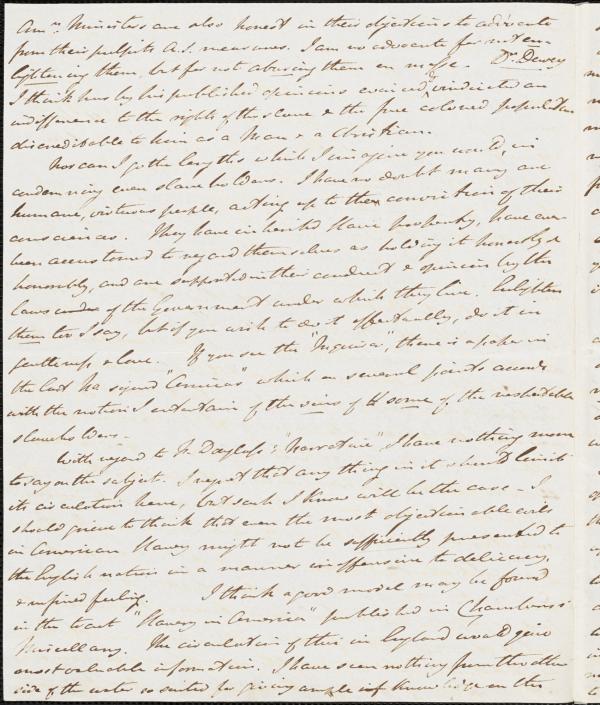 Amn. Ministers are also honest in their objections to advocate
from their pulpits A.S. measures. I am no advocate for not en-
lightening them, but for not abusing them en masse. Dr. Dewey
I think has by his published opinions evinced, & vindicated an
indifference to the rights of the slave & the free coloured population
discreditable to him as a Man & a Christian.
Nor can I go the lengths which I imagine you would, in
condemning even slaveholders. I have no doubt many are
humane, virtuous people, acting up to the conviction of their
consciences. They have inherited Slave property, have ever
been accustomed to regard themselves as holding it honestly &
honorably, and are supported in their conduct & opinions by the
laws of the Government under which they live. Enlighten
them too I say, but if you wish to do it effectually, do it in
gentleness, & love. If you see the "Inquirer", there is a paper in
the last No. signed which on several points accords
with the notion I entertain of the views of some of the respectable
slaveholders.
With regard to F. Douglass's "Narrative", I have nothing more
to say on the subject. I regret that any thing in it should limit
its circulation here, but such I know will be the case. I
should grieve to think that even the most objectionable evils
in American Slavery might not be sufficiently presented to
the English nation in a manner inoffensive to delicacy,
& refined feeling. I think a good model may be found
in the tract "Slavery in America" published in Chambers'
Miscellany. The circulation of this in England would give
most valuable information. I have seen nothing from the other
side of the water so suited for giving ample knowledge on this